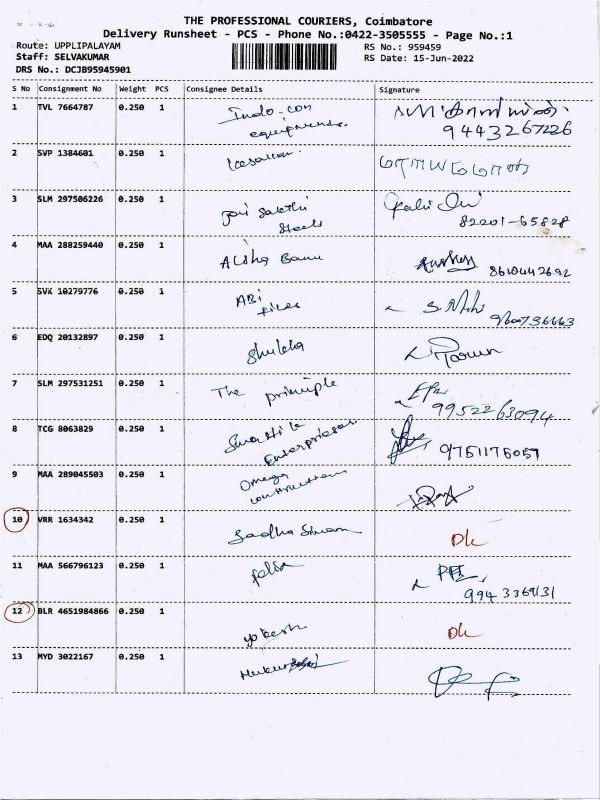 THE PROFESSIONAL COURIERS, Coimbatore
Delivery Runsheet - PCS - Phone No.:0422-3505555 - Page No.:1
Route: UPPLIPALAYAM
RS No.: 959459
Staff: SELVAKUMAR
RS Date: 15-Jun-2022
DRS No.: DCJB95945901
S No Consignment No Weight PCS Consignee Details Signature
1 TVL 7664787 0.250 1 Indo-con
equipments. 9443267226
2 SVP 1384601 0.250 1
3 SLM 297506226 0.250 1 Sakthi
Steels 82201-65828
4 MAA 288259440 0.250 1 Alisha Banu 8610442692
5 SVK 10279776 0.250 1 ABi
9600736663
6 EDQ 20132897 0.250 1
7 SLM 297531251 0.250 1 The principle
9952263094
8 TCG 8063829 0.250 1
Enterprises 9751175057
9 MAA 289045503 0.250 1 Omega
10 VRR 1634342 0.250 1 Sadha Sivam DL
11 MAA 566796123 0.250 1
12 BLR 4651984866 0.250 1 DL
13 MYD 3022167 0.250 1